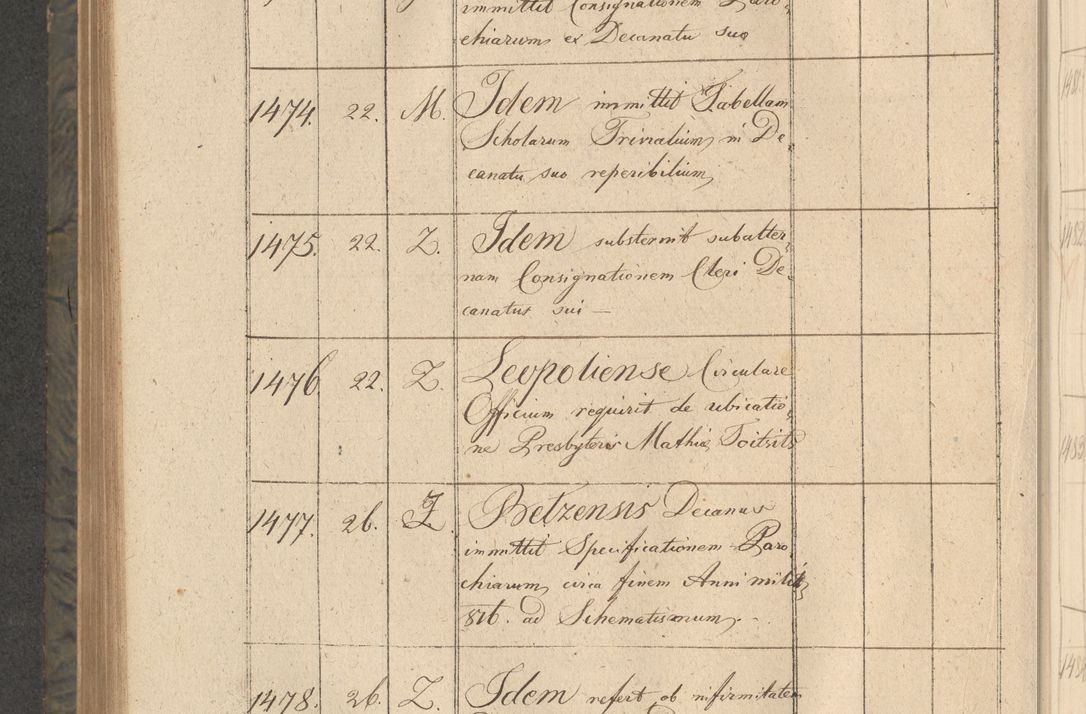 immittit Consignationem Paro-
chiarum ex Decanatu suo
1474. 22. M. Idem immittit Tabellam
Scholarum Trivialium in De-
canatu suo reperibilium
1475. 22. Z. Idem substernit subalter-
nam Consignationem Cleri De-
canatus sui —
1476. 22. Z. Leopoliense Circulare
Officium requirit de ubicatio-
ne Presbyteri Mathiæ
1477. 26. Z. Betzensis Decanus
immittit Specificationem Paro
chiarum circa finem Anni milit
816. ad Schematismum.
1478. 26. Z. Idem refert ob infirmitatem